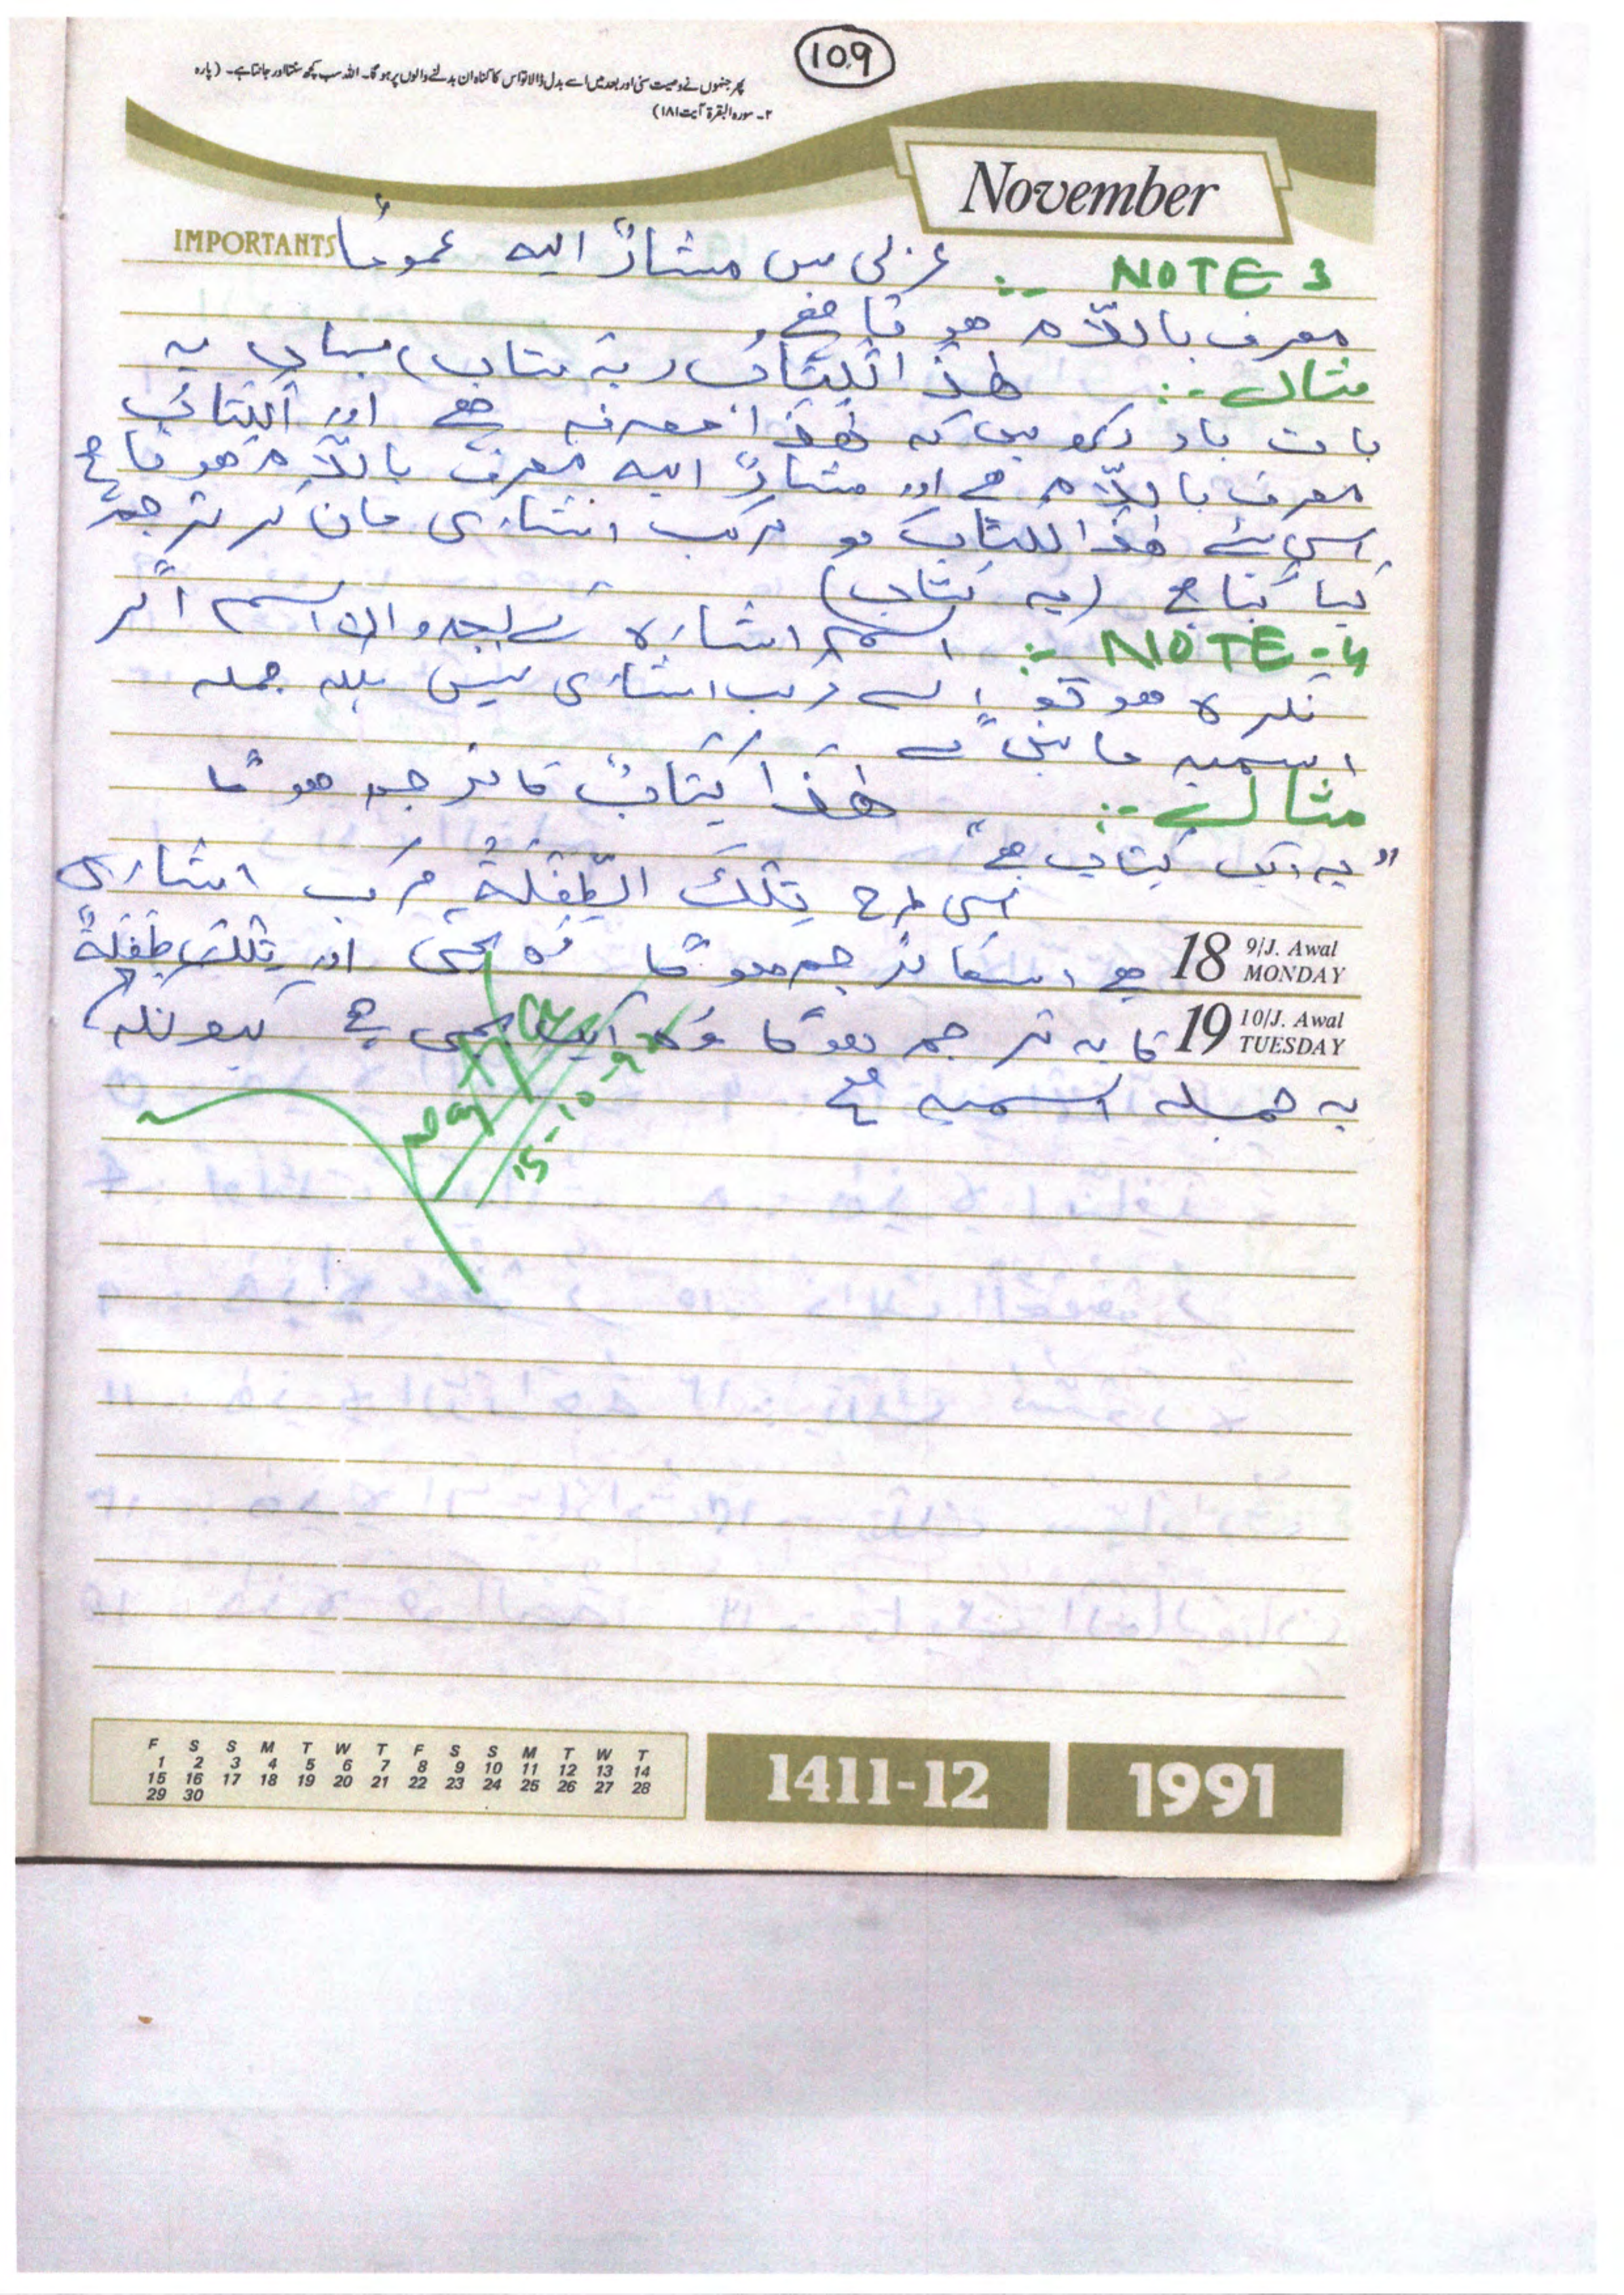 109
پھر جنہوں نے وصیت سنی اور بعد میں اسے بدل ڈالا تو اس کا گناہ ان بدلنے والوں پر ہو گا۔ اللہ سب کچھ سنتا اور جانتا ہے۔ (پارہ
۲۔ سورہ البقرۃ آیت ۱۸۱)
November
IMPORTANTS
NOTE 3 :- عربی میں مشارٌ الیہ عموماً
معرف باللّام ہوتا ہے
مثال :- ھٰذَا الْکِتَابُ (یہ کتاب) یہاں یہ
بات یاد رکھیں کہ ھٰذَا معرفہ ہے اور اَلْکِتَابُ
معرف باللّام ہے اور مشارٌ الیہ معرف باللّام ہوتا ہے
اسی لئے ھٰذَا الکتابُ کو مرکب اشاری مان کر ترجمہ
کیا گیا ہے (یہ کتاب)
NOTE - 4 :- اسم اشارہ کے بعد والا اسم اگر
نکرہ ہو تو اسے مرکب اشاری نہیں بلکہ جملہ
اسمیہ مانیں گے
مثال :- ھٰذَا کِتَابٌ کا ترجمہ ہو گا
"یہ ایک کتاب ہے"
اسی طرح تِلْکَ الطِّفْلَۃُ مرکب اشاری
18 9/J. Awal MONDAY
ہے اسکا ترجمہ ہو گا وہ بچی اور تِلْکَ طِفْلَۃٌ
19 10/J. Awal TUESDAY
کا یہ ترجمہ ہو گا وہ ایک بچی ہے کیونکہ
یہ جملہ اسمیہ ہے
F S S M T W T F S S M T W T
1 2 3 4 5 6 7 8 9 10 11 12 13 14
15 16 17 18 19 20 21 22 23 24 25 26 27 28
29 30
1411-12
1991